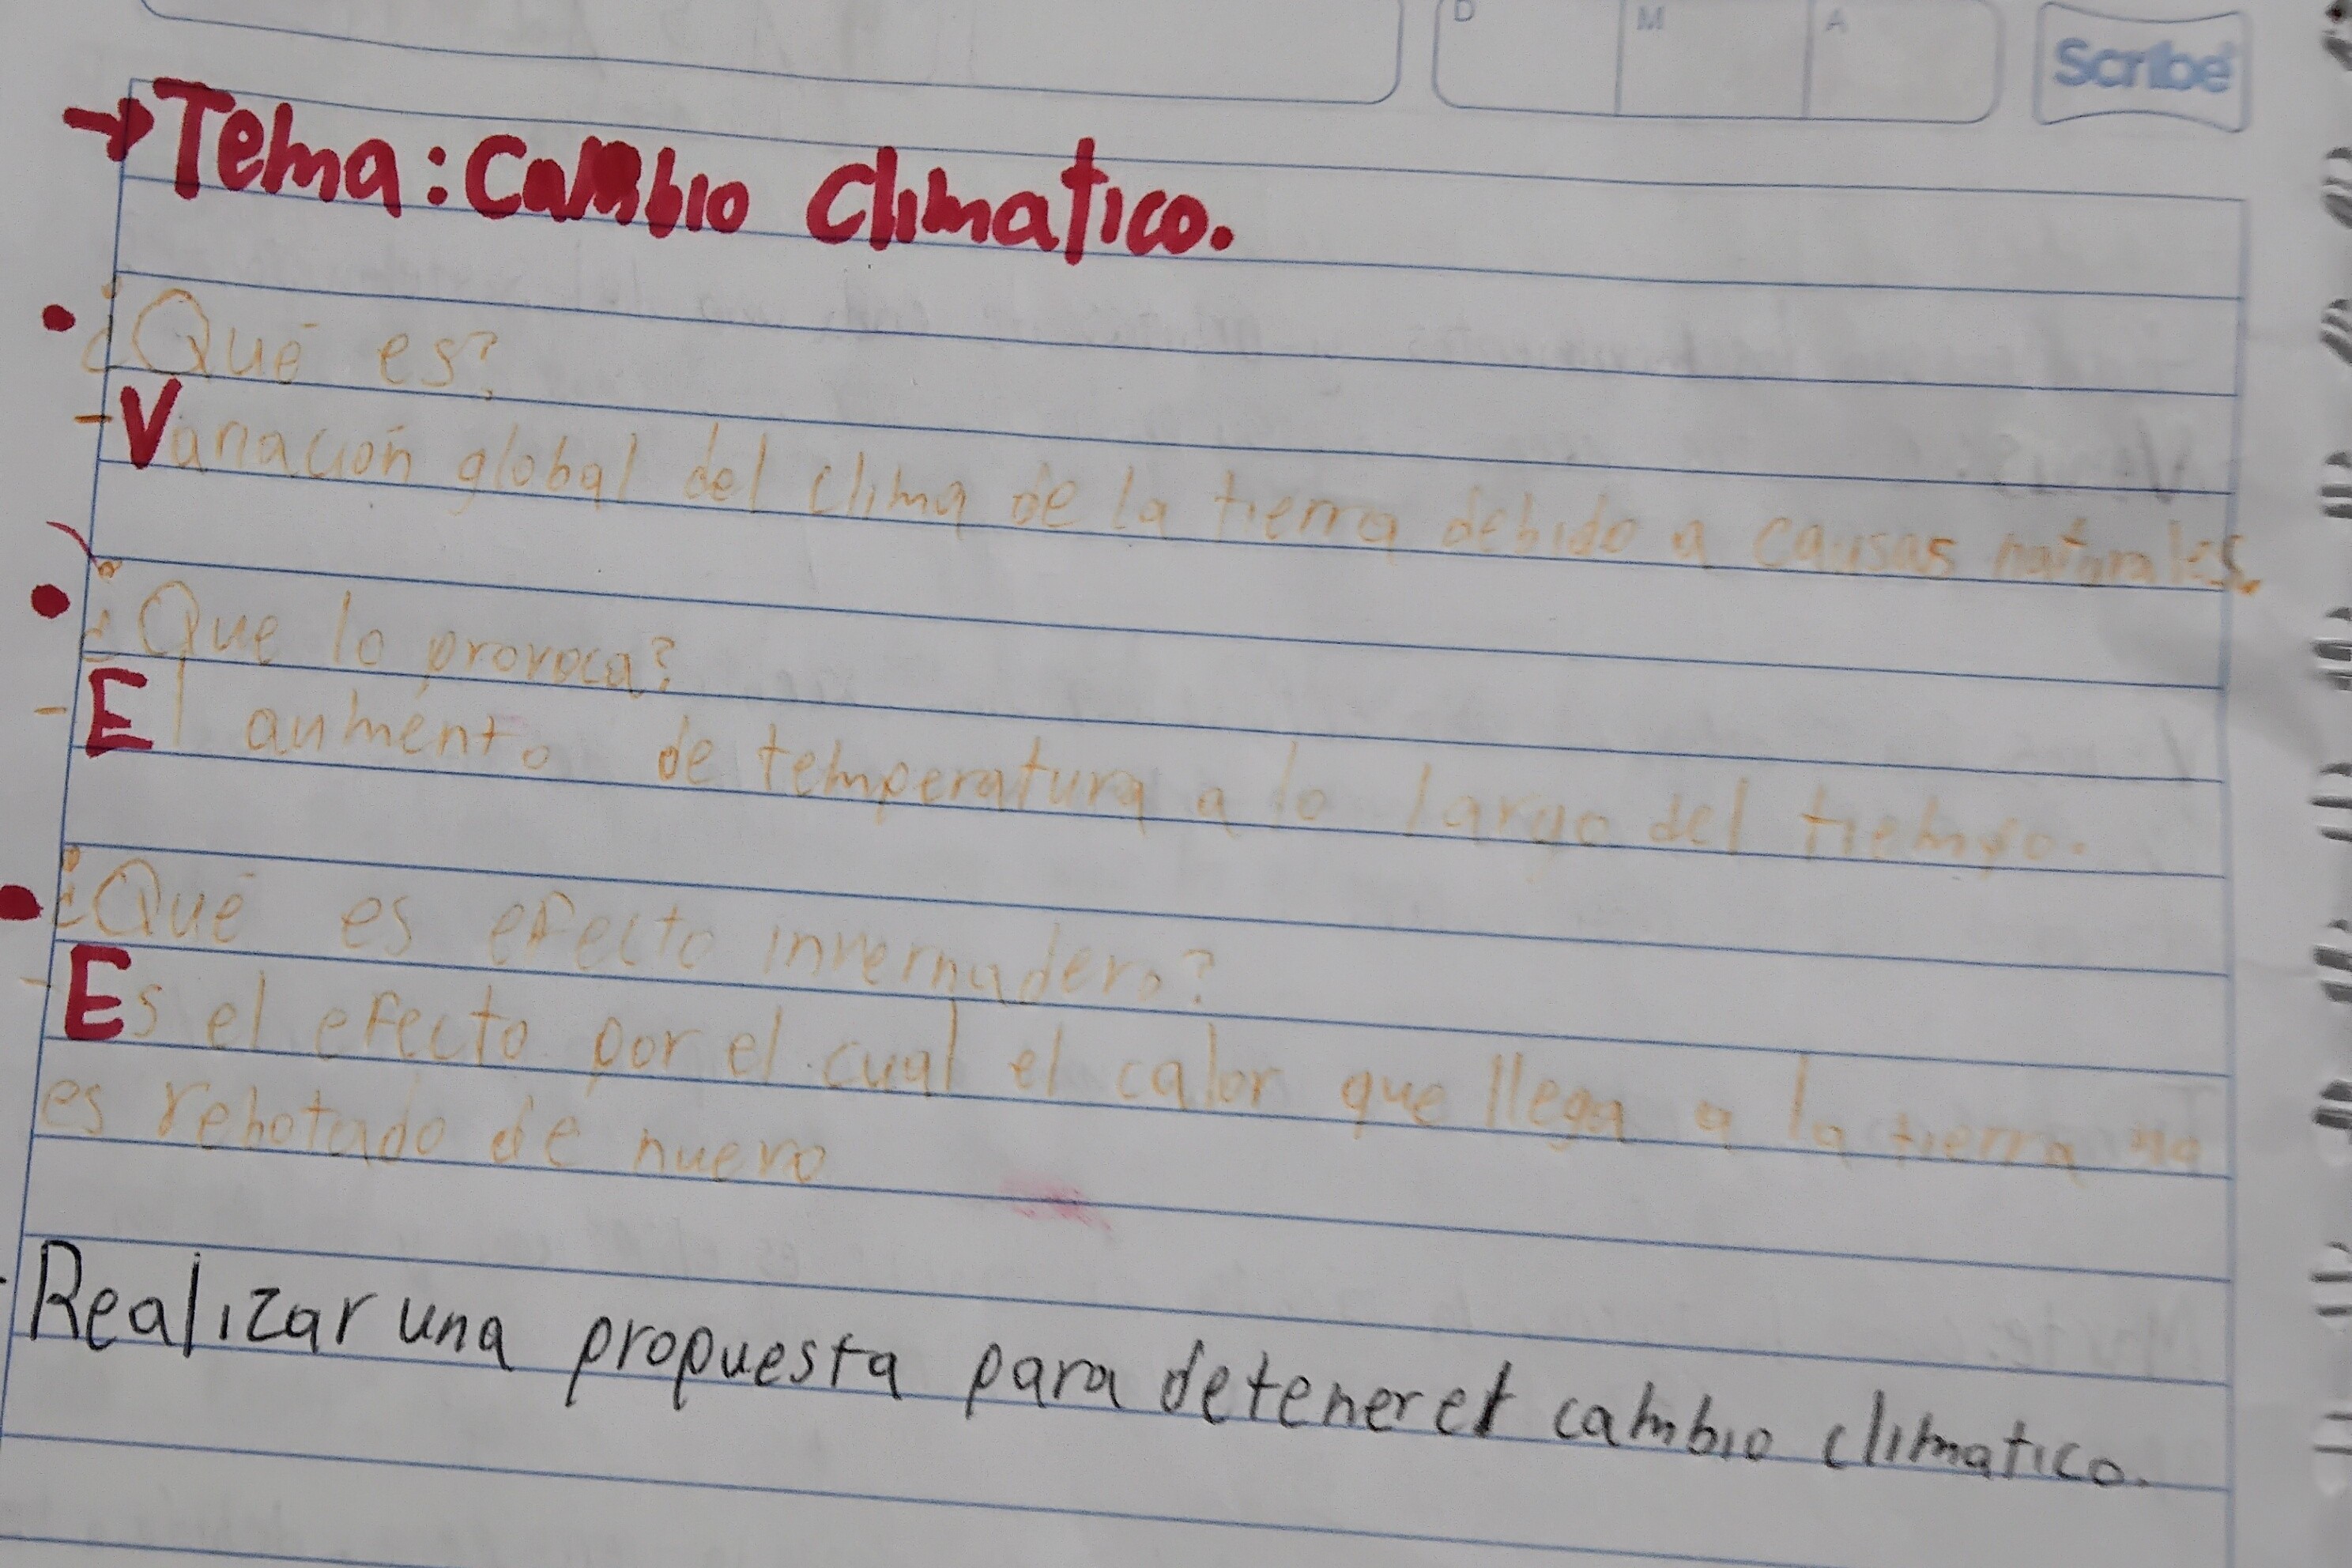 D M A Scribe
→Tema: Cambio Climatico.
• ¿Qué es?
- Variación global del clima de la tierra debido a causas naturales.
• ¿Que lo provoca?
- El aumento de temperatura a lo largo del tiempo.
• ¿Qué es efecto invernadero?
- Es el efecto por el cual el calor que llega a la tierra no
es rebotado de nuevo
- Realizar una propuesta para detener el cambio climatico.